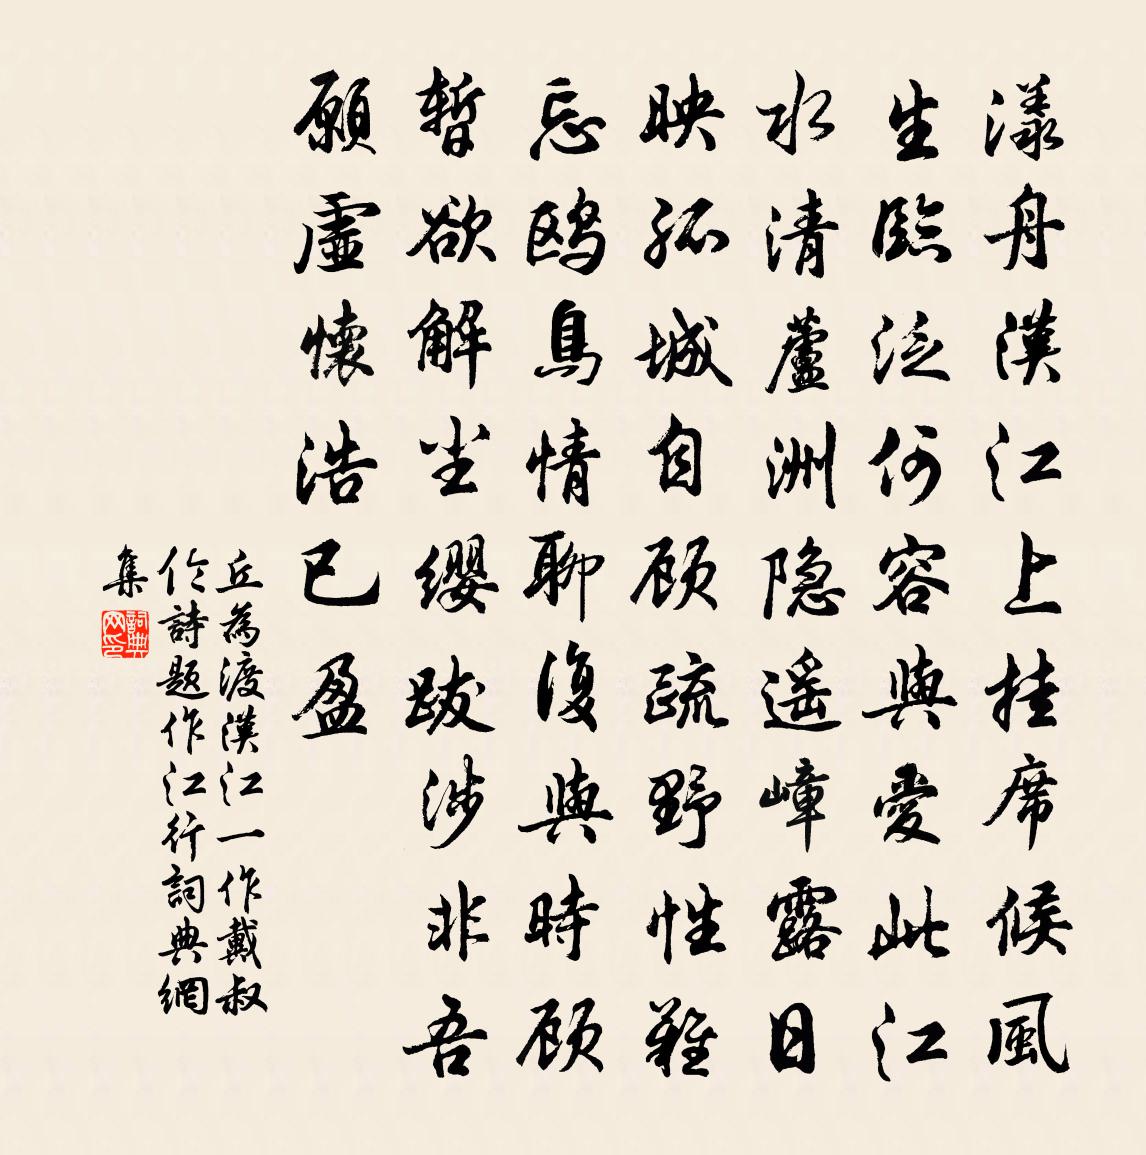 漾舟漢江上挂席候風
生臨泛何容與愛此江
水清蘆洲隐遥嶂露日
映孤城自顾疏野性難
忘鸥鳥情聊復與時顾
暫欲解尘缨跋涉非吾
願虛懷浩已盈
丘為渡漢江一作戴叔
伦詩題作江行詞典網
集
詞典网印